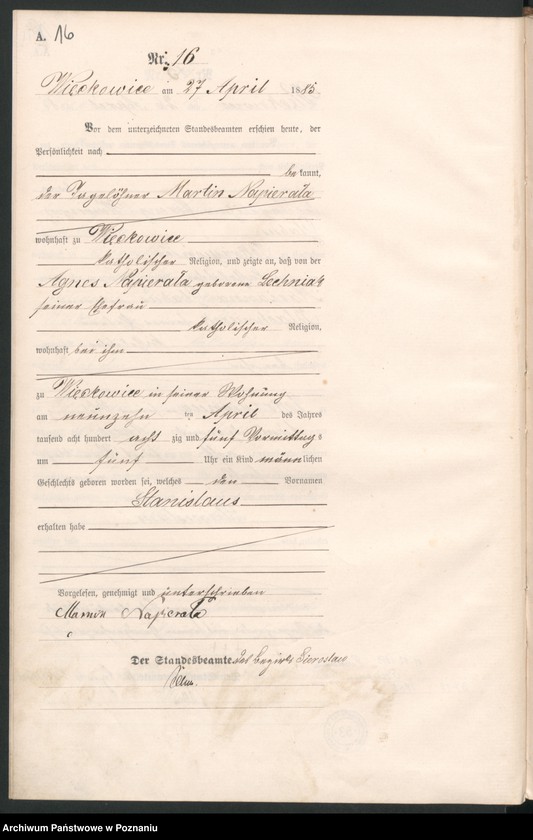 A. 16
Nr. 16
Wieckowice am 27 April 1885.
Vor dem unterzeichneten Standesbeamten erschien heute, der
Persönlichkeit nach
bekannt,
der Tagelöhner Martin Napierała
wohnhaft zu Wieckowice
katholischer Religion, und zeigte an, daß von der
Agnes Napierała geborene Lechniak
seiner Ehefrau
katholischer Religion,
wohnhaft bei ihm
zu Wieckowice in seiner Wohnung
am neunzehn ten April des Jahres
tausend acht hundert acht zig und fünf Vormittags
um fünf Uhr ein Kind männlichen
Geschlechts geboren worden sei, welches den Vornamen
Stanislaus
erhalten habe
Vorgelesen, genehmigt und unterschrieben
Napierała
Der Standesbeamte des Bezirks
Archiwum Państwowe w Poznaniu